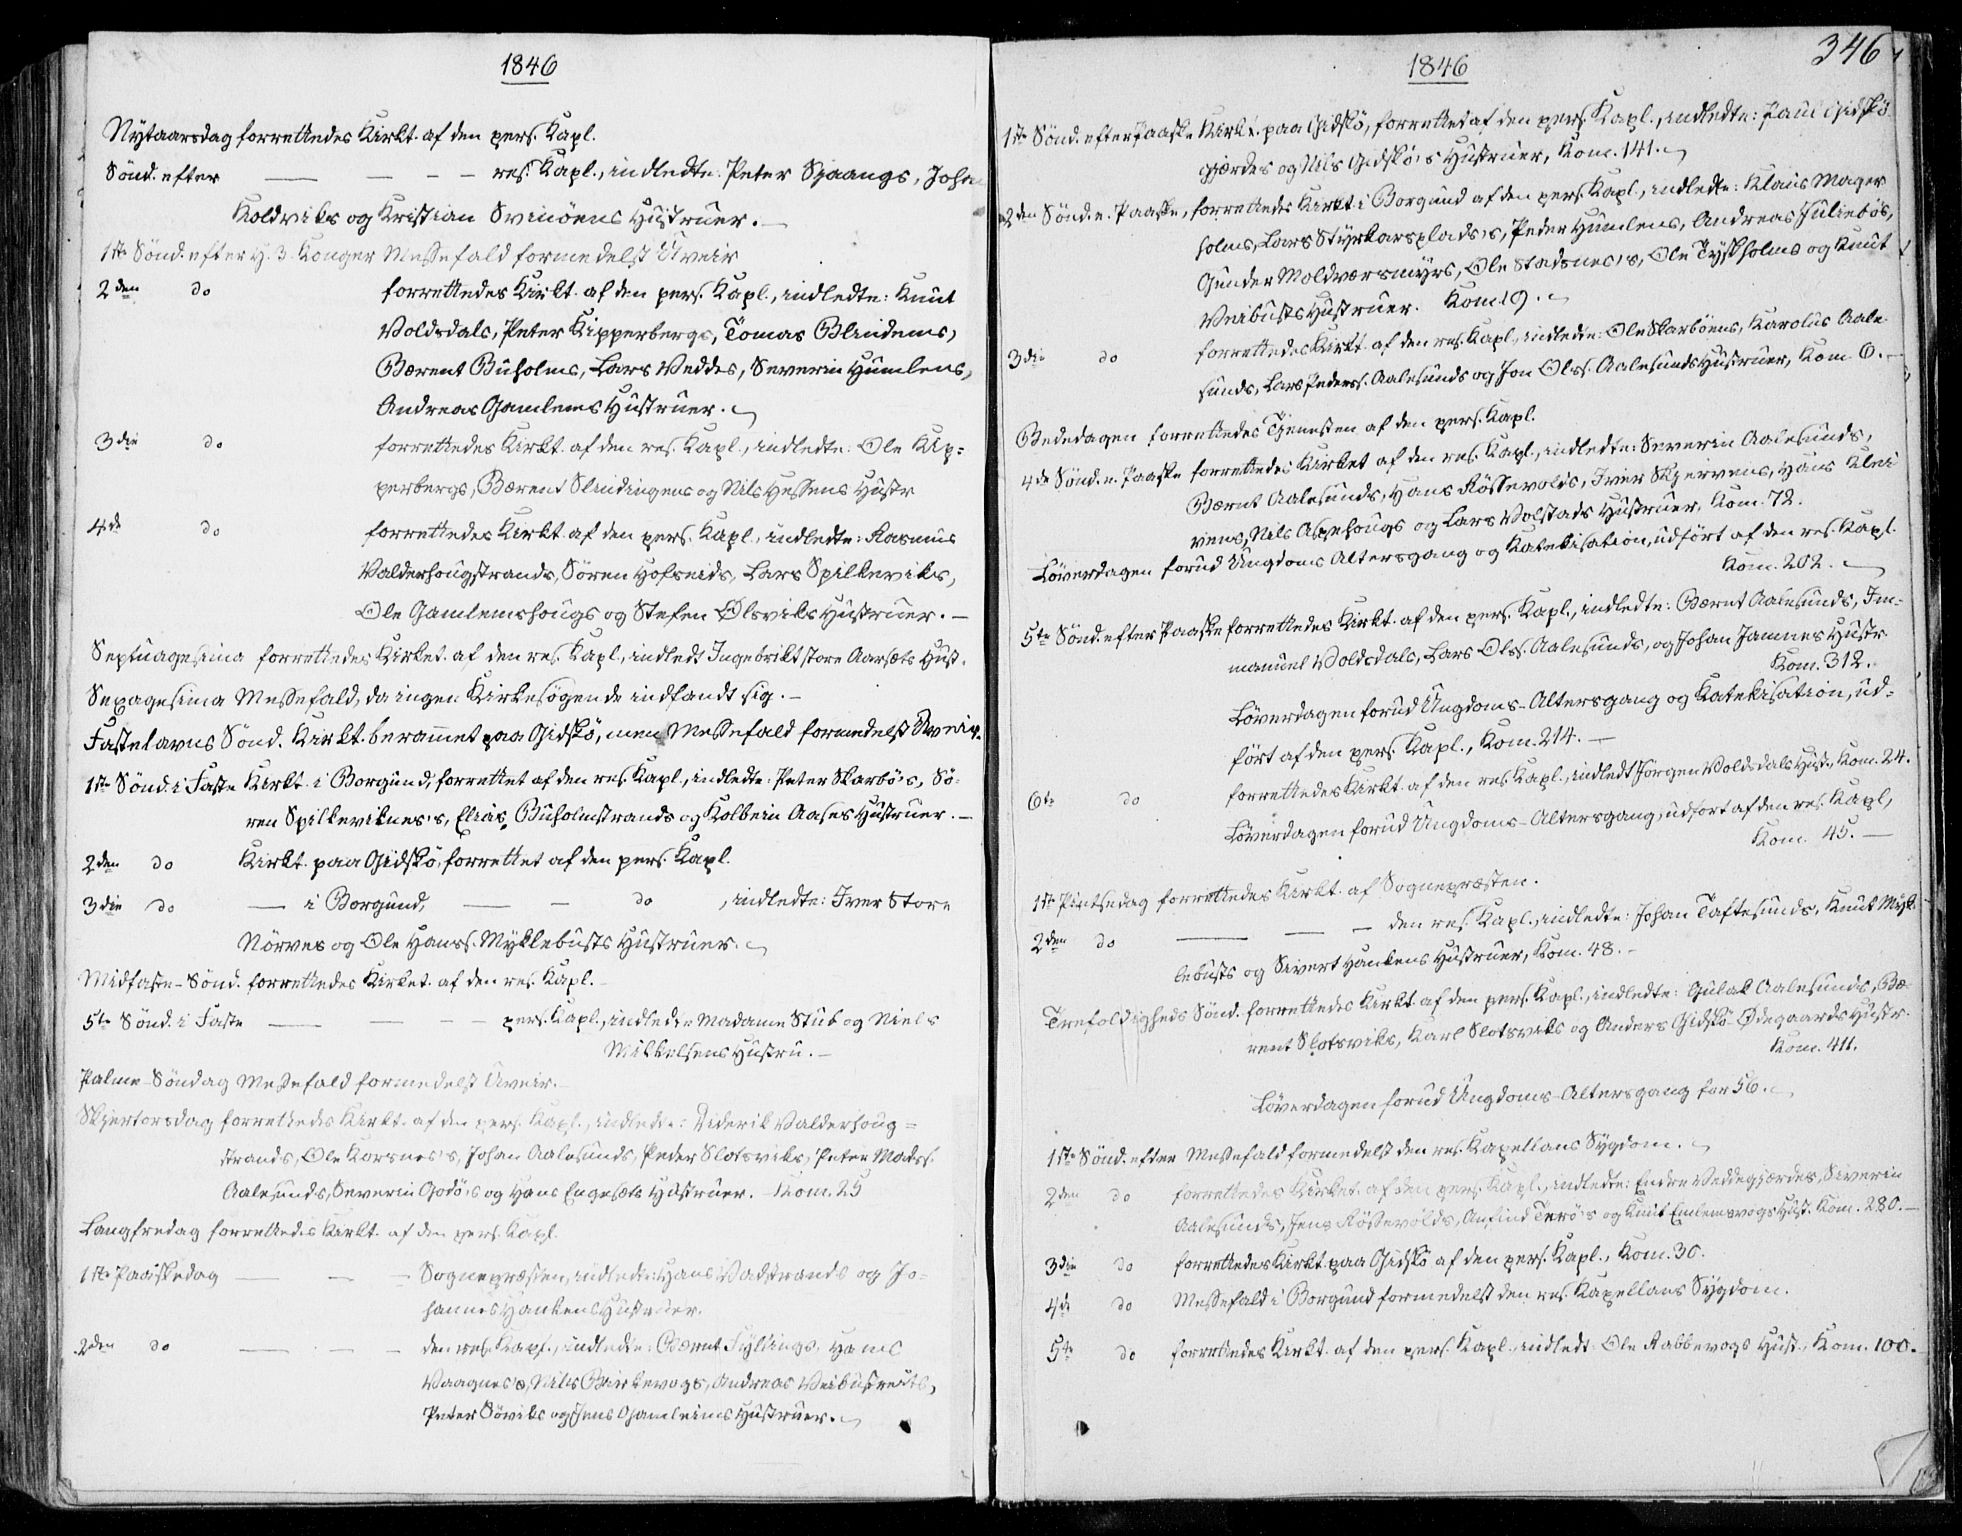 1846
Nytaarsdag forrettedes Kirkt. af den pers. Kapl.
Sönd. efter — — — — res. Kapl., indledte: Peter Spaangs, Joha
Koldviks og Kristian Svinöens Hustruer. —
1ste Sönd. efter H. 3 Konger Messefald formedelst Uveir
2den do forrettedes Kirkt. af den pers. Kapl., indledte: Knut
Voldsdals, Peter Kipperbergs, Tomas Blindems,
Bærent Buholms, Lars Veddes, Severin Humlens,
Andreas Gamlems Hustruer.
3die do forrettedes Kirkt. af den res. Kapl., indledte: Ole Kip=
perbergs, Bærent Slindingens og Nils Hessens Hustr
4de do forrettedes Kirkt. af den pers. Kapl., indledte: Rasmus
Valderhougstrands, Sören Hofseids, Lars Spilkeviks,
Ole Gamlemshougs og Stefen Ølsviks Hustruer. —
Septuagesima forrettedes Kirket. af den res. Kapl., indledt Ingebrikt store Aarsæts Hust.
Sexagesima Messefald, da ingen Kirkesögende indfandt sig. —
Fastelavns Sönd. Kirkt. berammet paa Gidskö, men Messefald formedelst Uveir.
1ste Sönd. i Faste Kirkt. i Borgund, forrettet af den res. Kapl., indledte: Peter Skarbö's, Sö-
ren Spilkeviknes's, Elias Buholmstrands og Kolbein Aases Hustruer. —
2den do Kirkt. paa Gidskö, forrettet af den pers. Kapl.
3die do — i Borgund, — — do , indledte: Iver Store
Nörves og Ole Hanss. Myklebusts Hustruer.
Midfaste-Sönd. forrettedes Kirket. af den res. Kapl. —
5te Sönd. i Faste — — — — pers. Kapl., indledte Madame Stub og Niels
Mikkelsens Hustru. —
Palme-Söndag Messefald formedelst Uveir. —
Skjertorsdag forrettedes Kirkt. af den pers. Kapl., indledte: Diderik Valderhoug=
strands, Ole Korsnes's, Johan Aalesunds, Peder Slotsviks, Peter Madss.
Aalesunds, Severin Godö's og Hans Engesæts Hustruer. Kom. 25
Langfredag forrettedes Kirkt. af den pers. Kapl.
1ste Paaskedag — — — Sognepræsten, indledte: Hans Vadstrands og Jo-
hannes Hankens Hustruer.
2den do — — — den res. Kapl., indledte: Bærnt Fyllings, Hans
Vaagnes's, Nils Birkevogs, Andreas Veibustreits,
Peter Söviks og Jens Gamleims Hustruer.
346
1846
1ste Sönd. efter Paaske Kirkt. paa Gidskö, forrettet af den pers. Kapl., indledte: Paul Gidskö
gjærdes og Nils Gidskö's Hustruer, Kom. 141.
2den Sönd. e. Paaske, forrettedes Kirkt. i Borgund af den pers. Kapl., indledte: Klaus Mager
holms, Lars Styrkarsplads's, Peder Humlens, Andreas Juliebös,
Gunder Moldværsmyrs, Ole Stadsnes's, Ole Tyskholms og Knut
Veibusts Hustruer. Kom. 19.
3die do forrettedes Kirkt. af den res. Kapl., indledte: Ole Skarböens, Karolus Aale-
sunds, Lars Peders. Aalesunds og Jon Olss. Aalesunds Hustruer, Kom. 6. —
Bededagen forrettedes Tjenesten af den pers. Kapl.
4de Sönd. e. Paaske forrettedes Kirket af den res. Kapl., indledte: Severin Aalesunds,
Bærnt Aalesunds, Hans Rössevolds, Iver Skjervens, Hans Klei
vens, Nils Aspehougs og Lars Volstads Hustruer, Kom. 72.
Löverdagen forud Ungdoms Altersgang og Katekisation, udfört af den res. Kapl.
Kom. 202. —
5te Sönd. efter Paaske forrettedes Kirkt. af den pers. Kapl., indledte: Bærnt Aalesunds, Im-
manuel Voldsdals, Lars Olss. Aalesunds, og Johan Jamnes Hustr.
Kom. 312.
Löverdagen forud Ungdoms-Altersgang og Katekisation, ud-
fört af den pers. Kapl., Kom. 214. —
6te do forrettedes Kirkt. af den res. Kapl., indledt Jörgen Voldsdals Hust., Kom. 24.
Löverdagen forud Ungdoms-Altersgang, udfört af den res. Kapl,
Kom. 45. —
1ste Pintsedag forrettedes Kirkt. af Sognepræsten.
2den do — — — den res. Kapl., indledte: Johan Taftesunds, Knut Myk-
lebusts og Sivert Hankens Hustruer, Kom. 48. —
Trefoldigheds Sönd. forrettedes Kirkt. af den pers. Kapl., indledte: Gulak Aalesunds, Bæ-
rent Slotsviks, Karl Slotsviks og Anders Gidskö-Ödegaards Hustr.
Kom. 411.
Löverdagen forud Ungdoms-Altersgang for 56.
1ste Sönd. efter Messefald formedelst den res. Kapellans Sygdom.
2den do forrettedes Kirket. af den pers. Kapl., indledte: Endre Veddegjærdes, Siverin
Aalesunds, Jens Rössevolds, Anfind Terö's og Knut Emlemsvogs Hust. Kom. 280. —
3die do forrettedes Kirkt. paa Gidskö af den pers. Kapl., Kom. 30.
4de do Messefald i Borgund formedelst den res. Kapellans Sygdom.
5te do forrettedes Kirkt. af den pers. Kapl., indledt: Ole Rabbevogs Hust., Kom. 100.